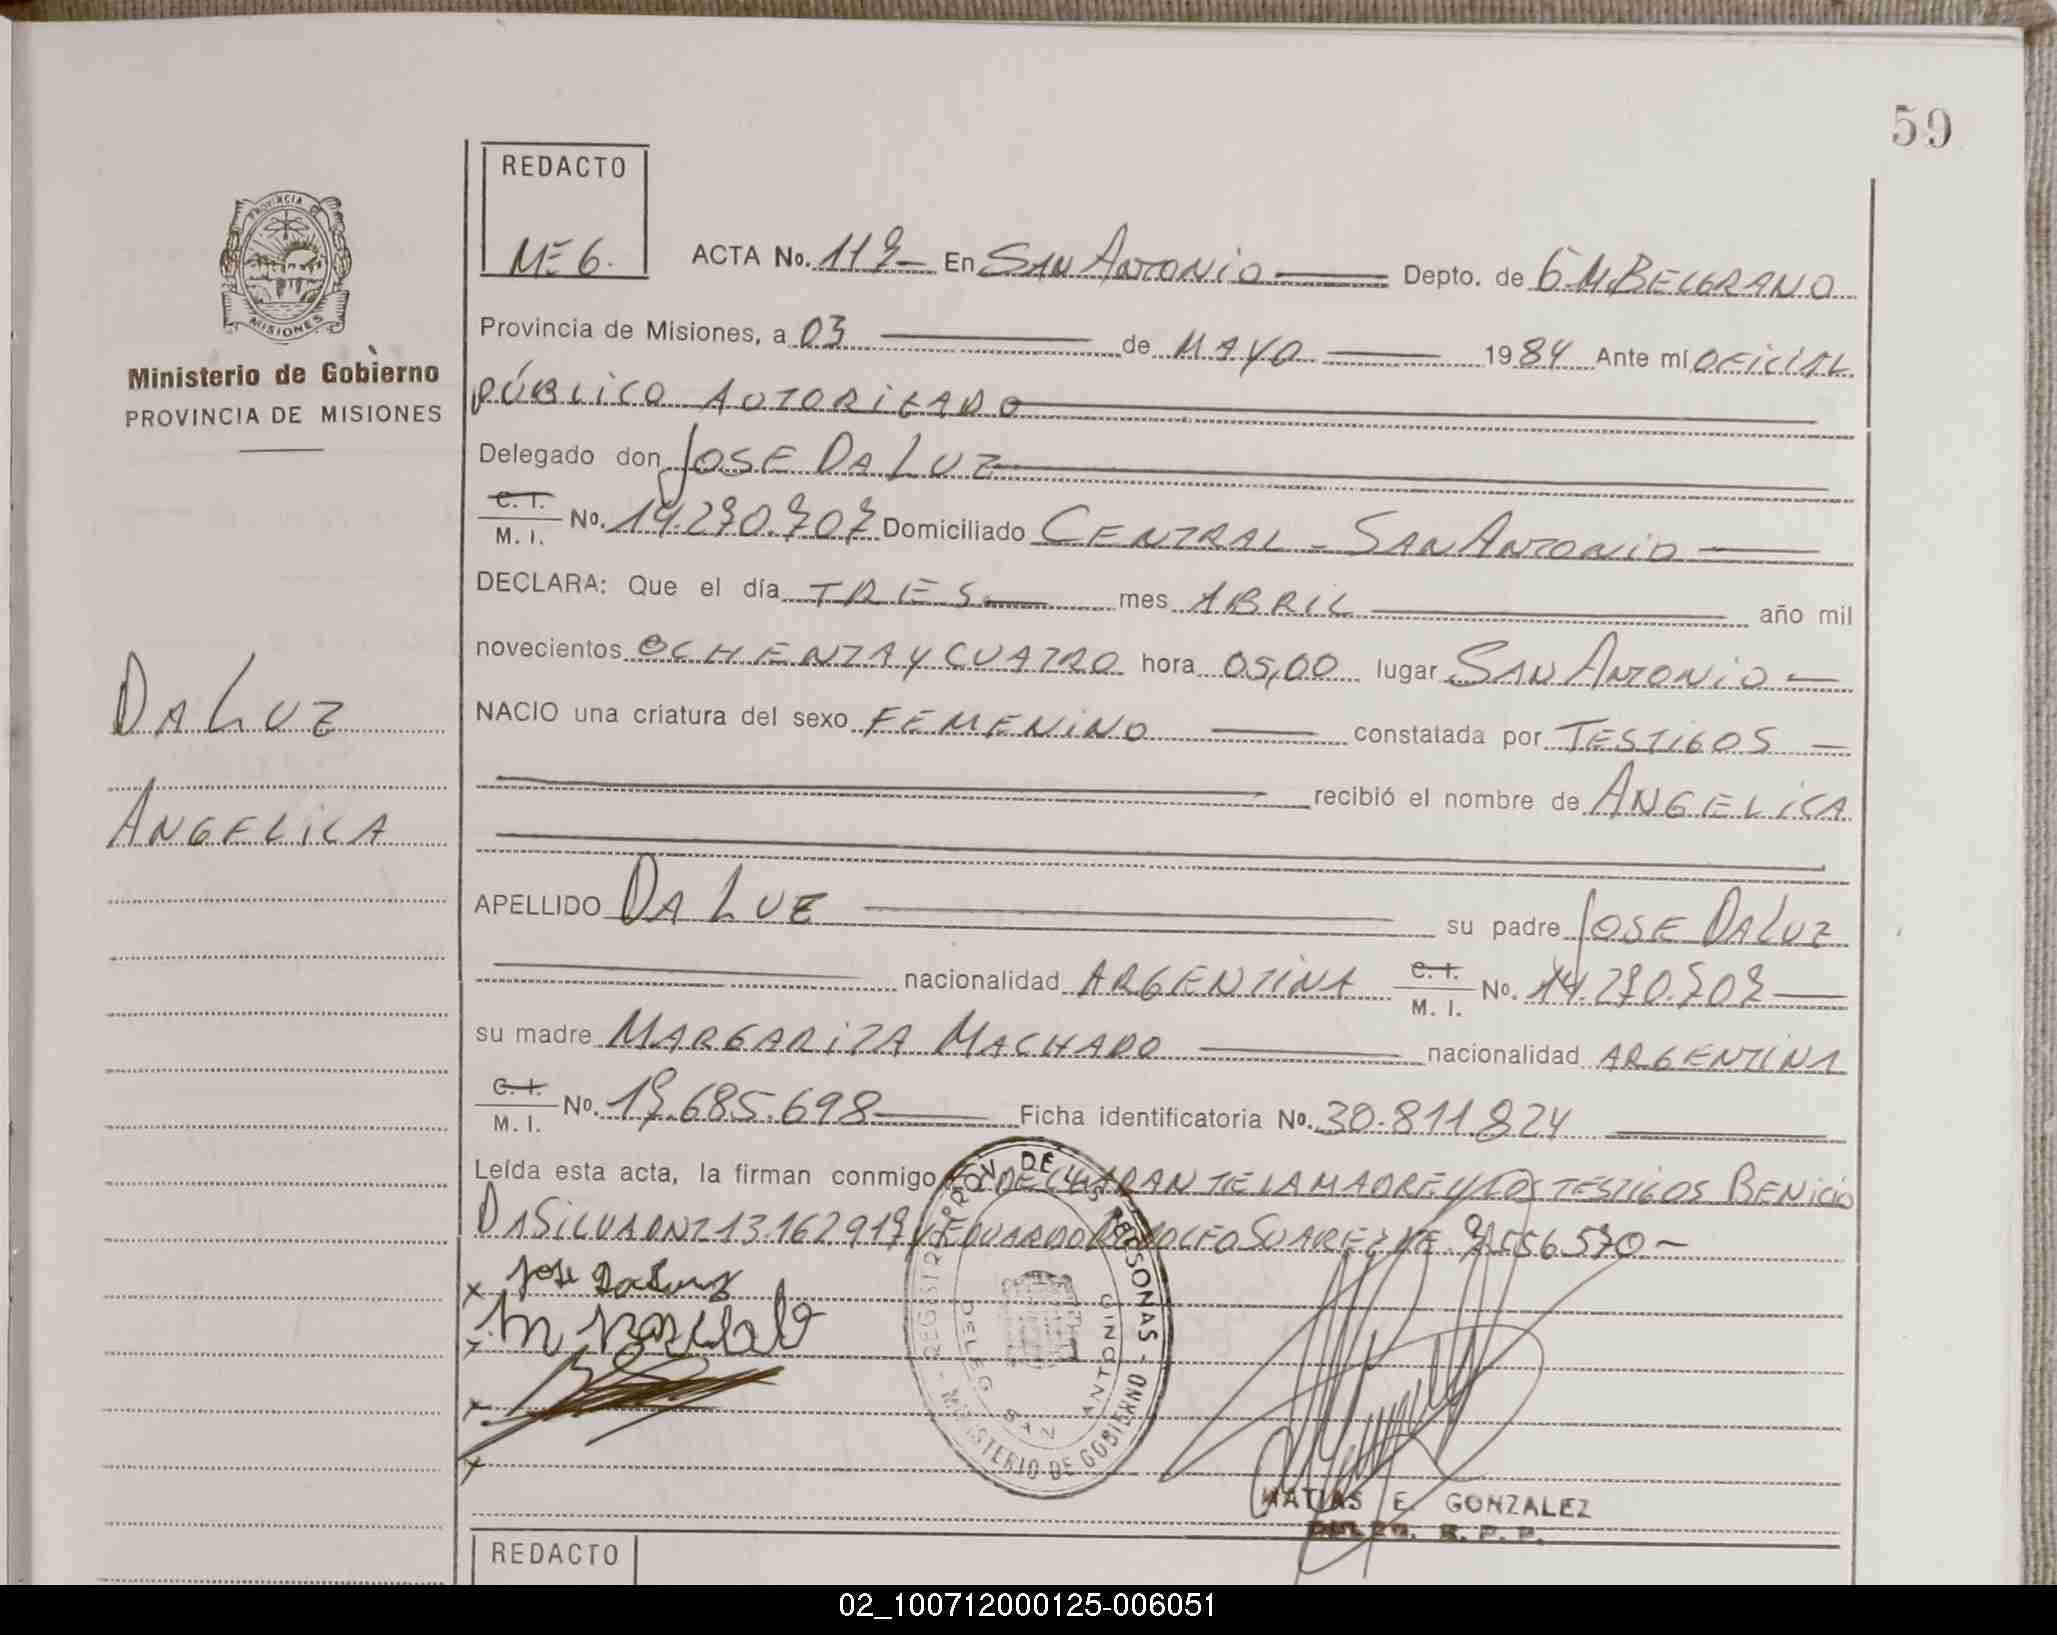 59
REDACTO
ME 6.
ACTA No. 117 En SAN ANTONIO Depto. de G M. BELGRANO
Provincia de Misiones, a 03 de MAYO 1984 Ante mí OFICIAL
PÚBLICO AUTORIZADO
Delegado don JOSE DA LUZ
C. I. M. I. No. 14.270.707 Domiciliado CENTRAL - SAN ANTONIO
DECLARA: Que el día TRES mes ABRIL año mil
novecientos OCHENTA Y CUATRO hora 05,00 lugar SAN ANTONIO
NACIO una criatura del sexo FEMENINO constatada por TESTIGOS
recibió el nombre de ANGELICA
APELLIDO DA LUZ su padre JOSE DA LUZ
nacionalidad ARGENTINA C. I. M. I. No. 14.270.707
su madre MARGARITA MACHADO nacionalidad ARGENTINA
C. I. M. I. No. 17.685.698 Ficha identificatoria No. 30.811.824
Leída esta acta, la firman conmigo DECLARANTE LA MADRE Y LOS TESTIGOS BENICIO
DA SILVA DNI 13.162.917 Y EDUARDO SUAREZ 556.570
Jose Da Luz
PROVINCIA DE
MISIONES
Ministerio de Gobierno
PROVINCIA DE MISIONES
DA LUZ
ANGELICA
PROV. DE LAS PERSONAS - MINISTERIO DE GOBIERNO - REGISTRO
DELEG SAN ANTONIO
MATIAS E. GONZALEZ
R. P. P.
REDACTO
02_100712000125-006051